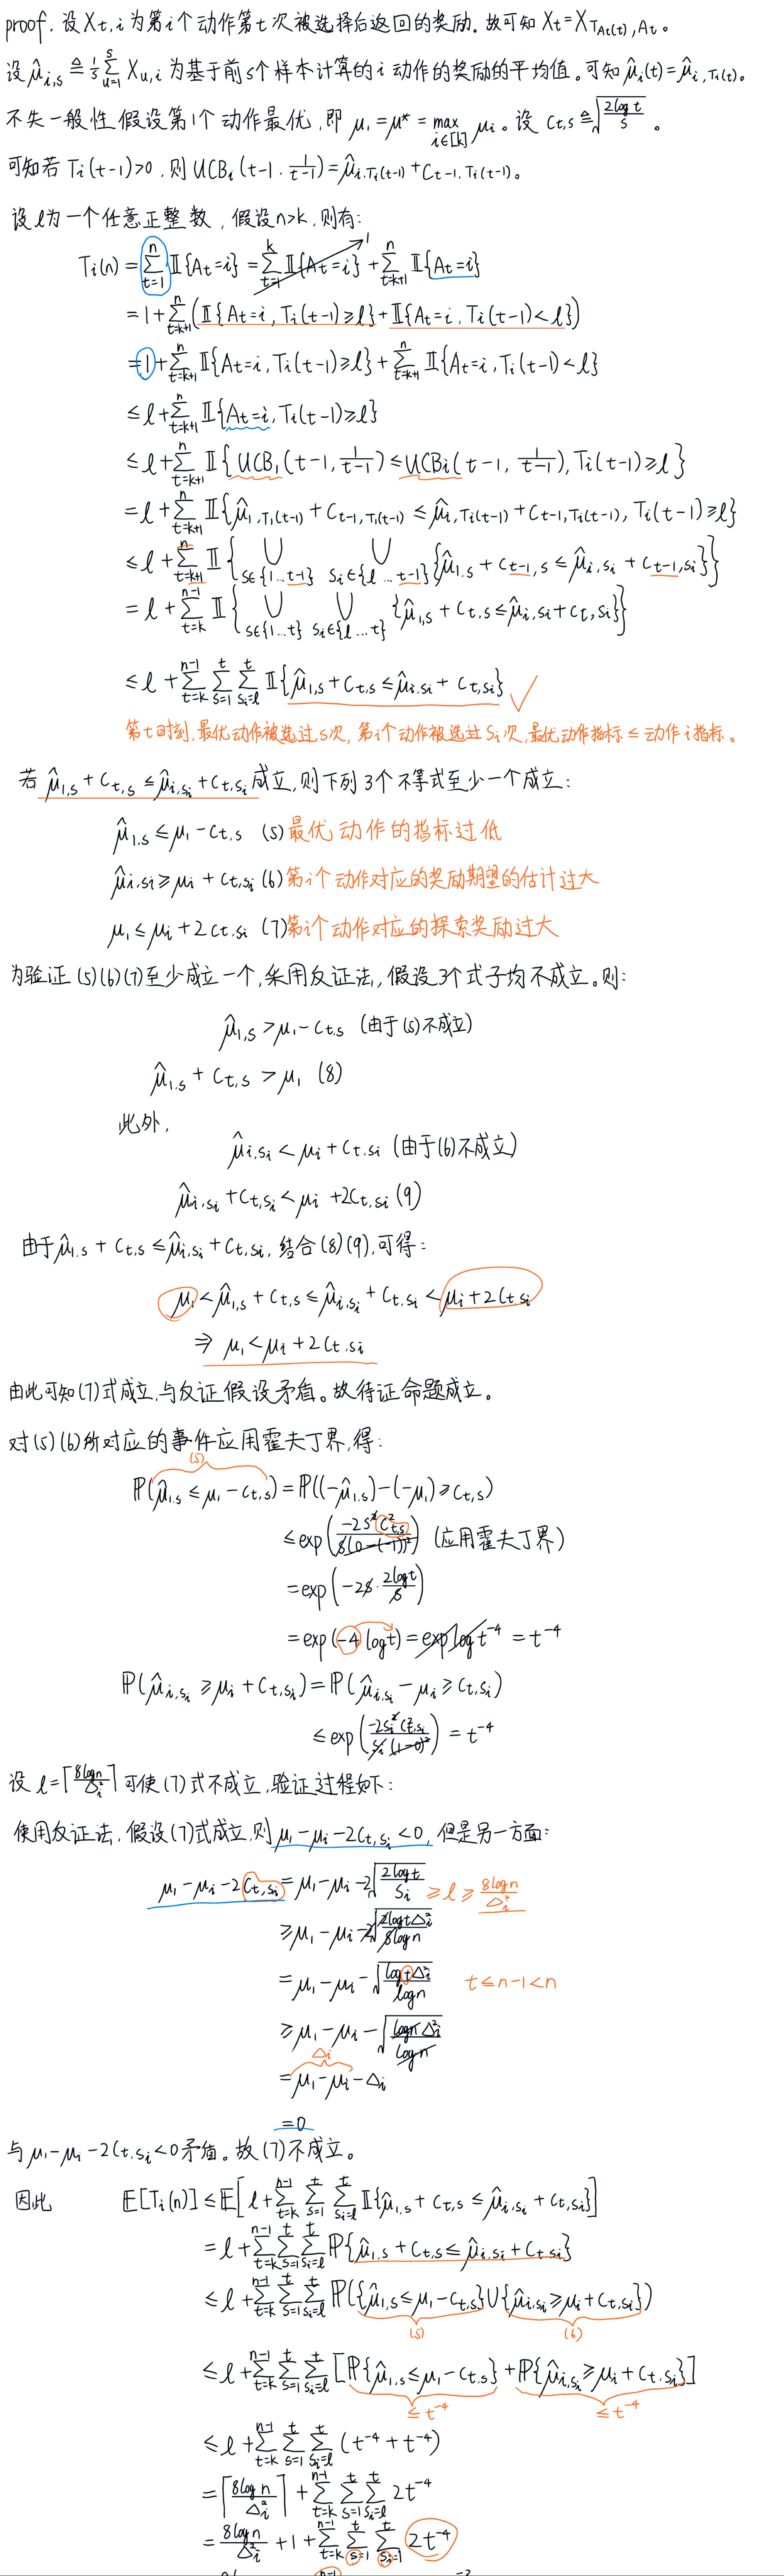 proof. 设 X_{t,i} 为第 i 个动作第 t 次被选择后返回的奖励。故可知 X_t = X_{T_{A_t}(t), A_t}。
设 μ̂_{i,s} ≜ 1/s ∑_{u=1}^{s} X_{u,i} 为基于前 s 个样本计算的 i 动作的奖励的平均值。可知 μ̂_i(t) = μ̂_{i,T_i(t)}。
不失一般性,假设第 1 个动作最优,即 μ_1 = μ* = max_{i∈[k]} μ_i。设 C_{t,s} ≜ √(2log t / s)。
可知若 T_i(t-1)>0,则 UCB_i(t-1, 1/(t-1)) = μ̂_{i,T_i(t-1)} + C_{t-1,T_i(t-1)}。
设 ℓ 为一个任意正整数,假设 n>k,则有:
T_i(n) = ∑_{t=1}^{n} 𝕀{A_t=i} = ∑_{t=1}^{k} 𝕀{A_t=i} + ∑_{t=k+1}^{n} 𝕀{A_t=i}
1
= 1 + ∑_{t=k+1}^{n} (𝕀{A_t=i, T_i(t-1)≥ℓ} + 𝕀{A_t=i, T_i(t-1)<ℓ})
= 1 + ∑_{t=k+1}^{n} 𝕀{A_t=i, T_i(t-1)≥ℓ} + ∑_{t=k+1}^{n} 𝕀{A_t=i, T_i(t-1)<ℓ}
≤ ℓ + ∑_{t=k+1}^{n} 𝕀{A_t=i, T_i(t-1)≥ℓ}
≤ ℓ + ∑_{t=k+1}^{n} 𝕀{UCB_1(t-1, 1/(t-1)) ≤ UCB_i(t-1, 1/(t-1)), T_i(t-1)≥ℓ}
= ℓ + ∑_{t=k+1}^{n} 𝕀{μ̂_{1,T_1(t-1)} + C_{t-1,T_1(t-1)} ≤ μ̂_{i,T_i(t-1)} + C_{t-1,T_i(t-1)}, T_i(t-1)≥ℓ}
≤ ℓ + ∑_{t=k+1}^{n} 𝕀{∪_{s∈{1...t-1}} ∪_{s_i∈{ℓ...t-1}} {μ̂_{1,s} + C_{t-1,s} ≤ μ̂_{i,s_i} + C_{t-1,s_i}}}
= ℓ + ∑_{t=k}^{n-1} 𝕀{∪_{s∈{1...t}} ∪_{s_i∈{ℓ...t}} {μ̂_{1,s} + C_{t,s} ≤ μ̂_{i,s_i} + C_{t,s_i}}}
≤ ℓ + ∑_{t=k}^{n-1} ∑_{s=1}^{t} ∑_{s_i=ℓ}^{t} 𝕀{μ̂_{1,s} + C_{t,s} ≤ μ̂_{i,s_i} + C_{t,s_i}} ✓
第 t 时刻,最优动作被选过 s 次,第 i 个动作被选过 s_i 次,最优动作指标 ≤ 动作 i 指标。
若 μ̂_{1,s} + C_{t,s} ≤ μ̂_{i,s_i} + C_{t,s_i} 成立,则下列 3 个不等式至少一个成立:
μ̂_{1,s} ≤ μ_1 - C_{t,s} (5) 最优动作的指标过低
μ̂_{i,s_i} ≥ μ_i + C_{t,s_i} (6) 第 i 个动作对应的奖励期望的估计过大
μ_1 ≤ μ_i + 2C_{t,s_i} (7) 第 i 个动作对应的探索奖励过大
为验证 (5)(6)(7) 至少成立一个,采用反证法,假设 3 个式子均不成立。则:
μ̂_{1,s} > μ_1 - C_{t,s} (由于(5)不成立)
μ̂_{1,s} + C_{t,s} > μ_1 (8)
此外,
μ̂_{i,s_i} < μ_i + C_{t,s_i} (由于(6)不成立)
μ̂_{i,s_i} + C_{t,s_i} < μ_i + 2C_{t,s_i} (9)
由于 μ̂_{1,s} + C_{t,s} ≤ μ̂_{i,s_i} + C_{t,s_i},结合 (8)(9),可得:
μ_1 < μ̂_{1,s} + C_{t,s} ≤ μ̂_{i,s_i} + C_{t,s_i} < μ_i + 2C_{t,s_i}
⇒ μ_1 < μ_i + 2C_{t,s_i}
由此可知 (7) 式成立,与反证假设矛盾。故待证命题成立。
对 (5)(6) 所对应的事件应用霍夫丁界,得:
(5)
ℙ(μ̂_{1,s} ≤ μ_1 - C_{t,s}) = ℙ((-μ̂_{1,s}) - (-μ_1) ≥ C_{t,s})
≤ exp(-2s²C²_{t,s} / s(0-(-1))²) (应用霍夫丁界)
= exp(-2s · 2log t / s)
= exp(-4 log t) = exp log t^{-4} = t^{-4}
ℙ(μ̂_{i,s_i} ≥ μ_i + C_{t,s_i}) = ℙ(μ̂_{i,s_i} - μ_i ≥ C_{t,s_i})
≤ exp(-2s_i²C²_{t,s_i} / s_i(1-0)²) = t^{-4}
设 ℓ = ⌈8log n / Δ_i²⌉ 可使 (7) 式不成立,验证过程如下:
使用反证法,假设 (7) 式成立,则 μ_1 - μ_i - 2C_{t,s_i} < 0,但是另一方面:
μ_1 - μ_i - 2C_{t,s_i} = μ_1 - μ_i - 2√(2log t / s_i) ≥ ℓ ≥ 8log n / Δ_i²
≥ μ_1 - μ_i - 2√(2log t Δ_i² / 8log n)
= μ_1 - μ_i - √(log t Δ_i² / log n) t ≤ n-1 < n
≥ μ_1 - μ_i - √(log n Δ_i² / log n)
Δ_i
= μ_1 - μ_i - Δ_i
= 0
与 μ_1 - μ_i - 2C_{t,s_i} < 0 矛盾。故 (7) 不成立。
因此 𝔼[T_i(n)] ≤ 𝔼[ℓ + ∑_{t=k}^{n-1} ∑_{s=1}^{t} ∑_{s_i=ℓ}^{t} 𝕀{μ̂_{1,s} + C_{t,s} ≤ μ̂_{i,s_i} + C_{t,s_i}}]
= ℓ + ∑_{t=k}^{n-1} ∑_{s=1}^{t} ∑_{s_i=ℓ}^{t} ℙ{μ̂_{1,s} + C_{t,s} ≤ μ̂_{i,s_i} + C_{t,s_i}}
≤ ℓ + ∑_{t=k}^{n-1} ∑_{s=1}^{t} ∑_{s_i=ℓ}^{t} ℙ({μ̂_{1,s} ≤ μ_1 - C_{t,s}} ∪ {μ̂_{i,s_i} ≥ μ_i + C_{t,s_i}})
(5) (6)
≤ ℓ + ∑_{t=k}^{n-1} ∑_{s=1}^{t} ∑_{s_i=ℓ}^{t} [ℙ{μ̂_{1,s} ≤ μ_1 - C_{t,s}} + ℙ{μ̂_{i,s_i} ≥ μ_i + C_{t,s_i}}]
≤ t^{-4} ≤ t^{-4}
≤ ℓ + ∑_{t=k}^{n-1} ∑_{s=1}^{t} ∑_{s_i=ℓ}^{t} (t^{-4} + t^{-4})
= ⌈8log n / Δ_i²⌉ + ∑_{t=k}^{n-1} ∑_{s=1}^{t} ∑_{s_i=ℓ}^{t} 2t^{-4}
= 8log n / Δ_i² + 1 + ∑_{t=k}^{n-1} ∑_{s=1}^{t} ∑_{s_i=1}^{t} 2t^{-4}